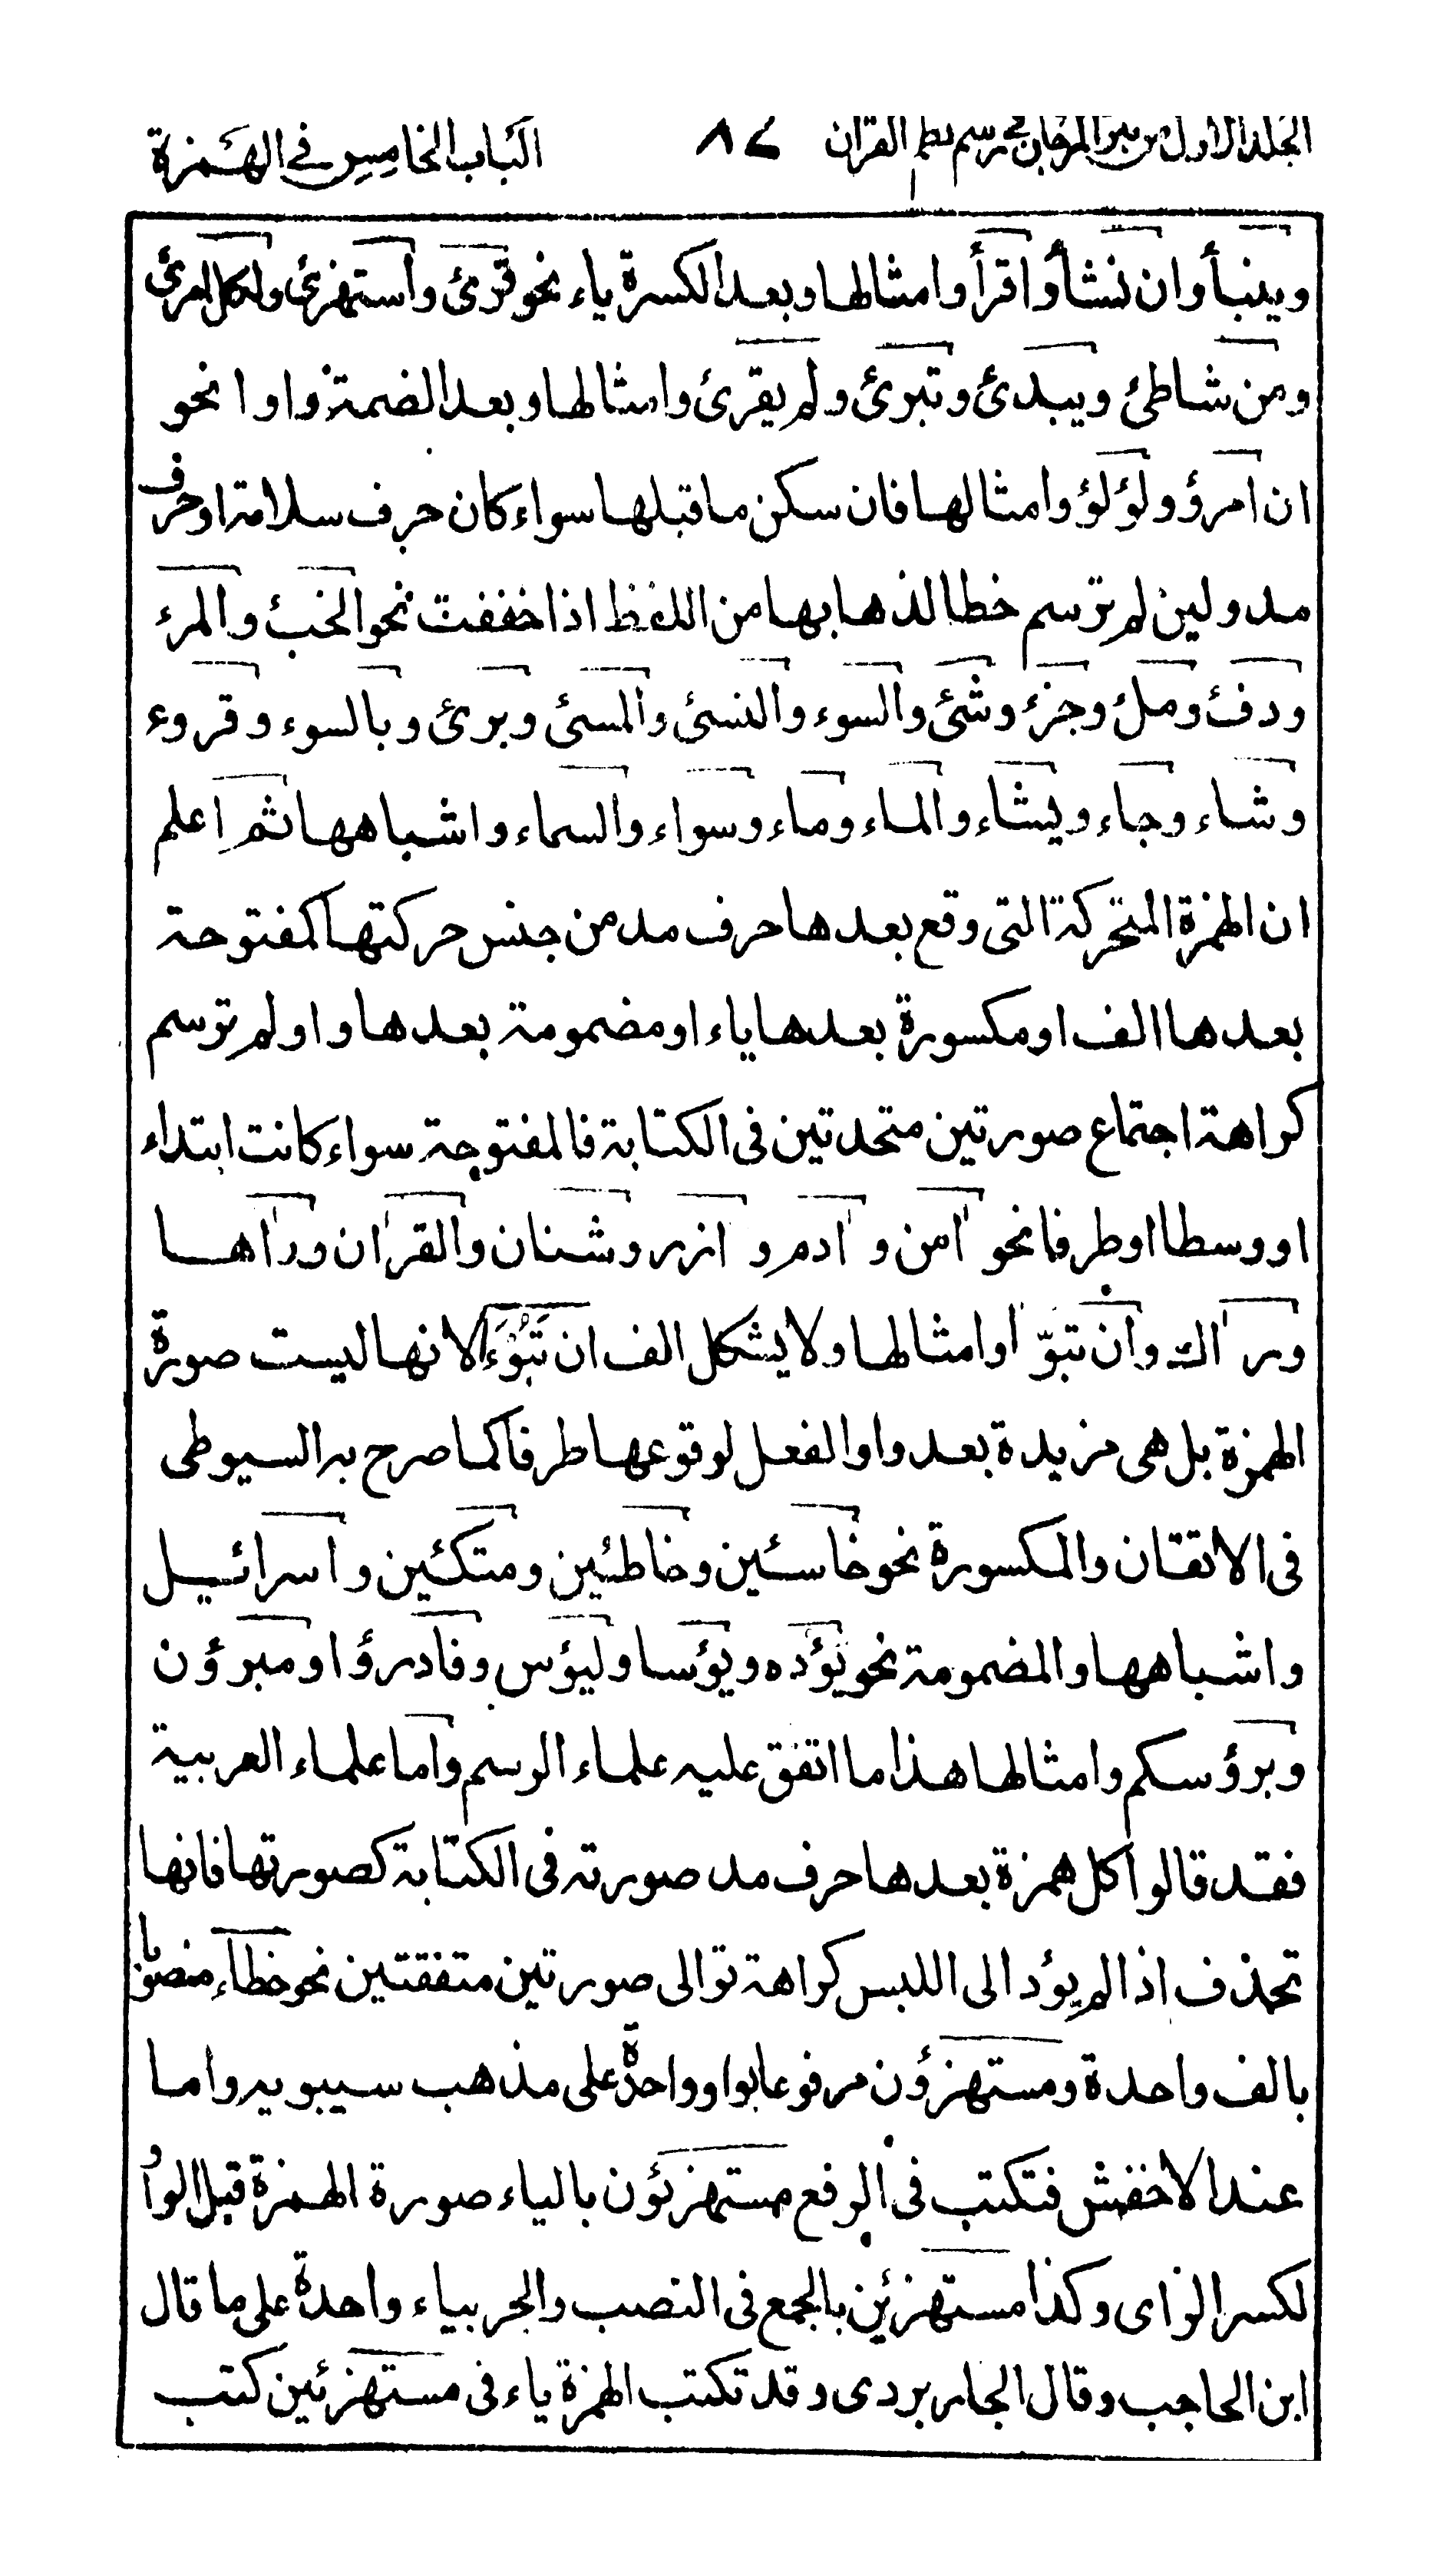 الجلد الاول من نثر المرجان في رسم نظم القران ٨٧ الباب الخامس في الهمزة
وينبأ وان نشأ واقرأ وامثالها وبعد الكسرة ياء نحو قرئ واستهزئ ولكل امرئ
ومن شاطئ ويبدئ وتبرئ ولم يقرئ وامثالها وبعد الضمة واوا نحو
ان امرؤ ولؤلؤ وامثالها فان سكن ما قبلها سواء كان حرف سلامة او حرف
مد ولين لم ترسم خطا لذهابها من اللفظ اذا خففت نحو الخبء والمرء
ودفء وملء وجزء وشئ والسوء والنسئ والمسئ وبرئ وبالسوء وقروء
وشاء وجاء ويشاء والماء وماء وسواء والسماء واشباهها ثم اعلم
ان الهمزة المتحركة التى وقع بعدها حرف مد من جنس حركتها كمفتوحة
بعدها الف او مكسورة بعدها ياء او مضمومة بعدها واو لم ترسم
كراهة اجتماع صورتين متحدتين فى الكتابة فالمفتوحة سواء كانت ابتداء
او وسطا او طرفا نحو اٰمن و اٰدم و اٰزر وشنان والقراٰن وراٰها
وراٰك وان تبوّاٰ وامثالها ولا يشكل الف ان تَبُوْءَا لانها ليست صورة
الهمزة بل هى مزيدة بعد واو الفعل لوقوعها طرفا كما صرح به السيوطى
فى الاتقان والمكسورة نحو خاسئين وخاطئين ومتكئين واسرائيل
واشباهها والمضمومة نحو يؤده ويؤسا وليؤس وفادرؤا ومبرؤن
وبرؤسكم وامثالها هذا ما اتفق عليه علماء الرسم واما علماء العربية
فقد قالوا كل همزة بعدها حرف مد صورته فى الكتابة كصورتها فانها
تحذف اذا لم يؤد الى اللبس كراهة توالى صورتين متفقتين نحو خطاء منصوبا
بالف واحدة ومستهزؤن مرفوعا بواو واحدة على مذهب سيبويه واما
عند الاخفش فتكتب فى الرفع مستهزئون بالياء صورة الهمزة قبل الواو
لكسر الزاى وكذا مستهزئين بالجمع فى النصب والجر بياء واحدة على ما قال
ابن الحاجب وقال الجاربردى وقد تكتب الهمزة ياء فى مستهزئين كتب